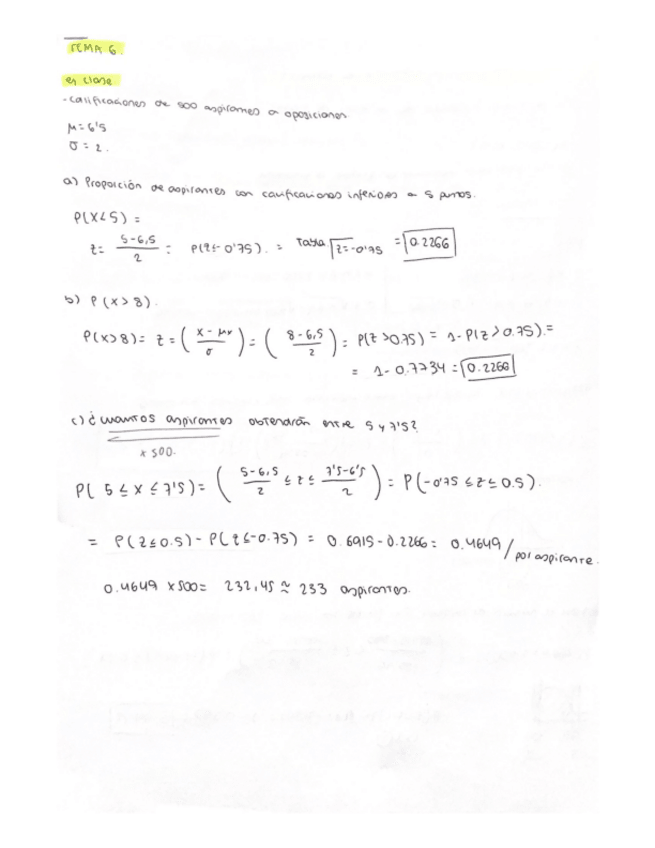 TEMA 6.
en clase
- Calificaciones de 500 aspirantes a oposiciones.
μ = 6'5
σ = 2.
a) Proporción de aspirantes con calificaciones inferiores a 5 puntos.
P(X<5) =
z = (5-6,5)/2 = P(z≤-0'75). = Tabla z=-0'75 = 0.2266
b) P(x>8).
P(x>8) = z = ( (x-μx)/σ ) = ( (8-6,5)/2 ) = P(z>0.75) = 1-P(z>0.75). =
= 1-0.7734 = 0.2266
c) ¿cuantos aspirantes obtendrán entre 5 y 7'5?
x 500.
P( 5 ≤ x ≤ 7'5) = ( (5-6,5)/2 ≤ z ≤ (7'5-6'5)/2 ) = P(-0'75 ≤ z ≤ 0.5).
= P(z≤0.5) - P(z≤-0.75) = 0.6915 - 0.2266 = 0.4649 / por aspirante.
0.4649 x 500 = 232,45 ≈ 233 aspirantes.